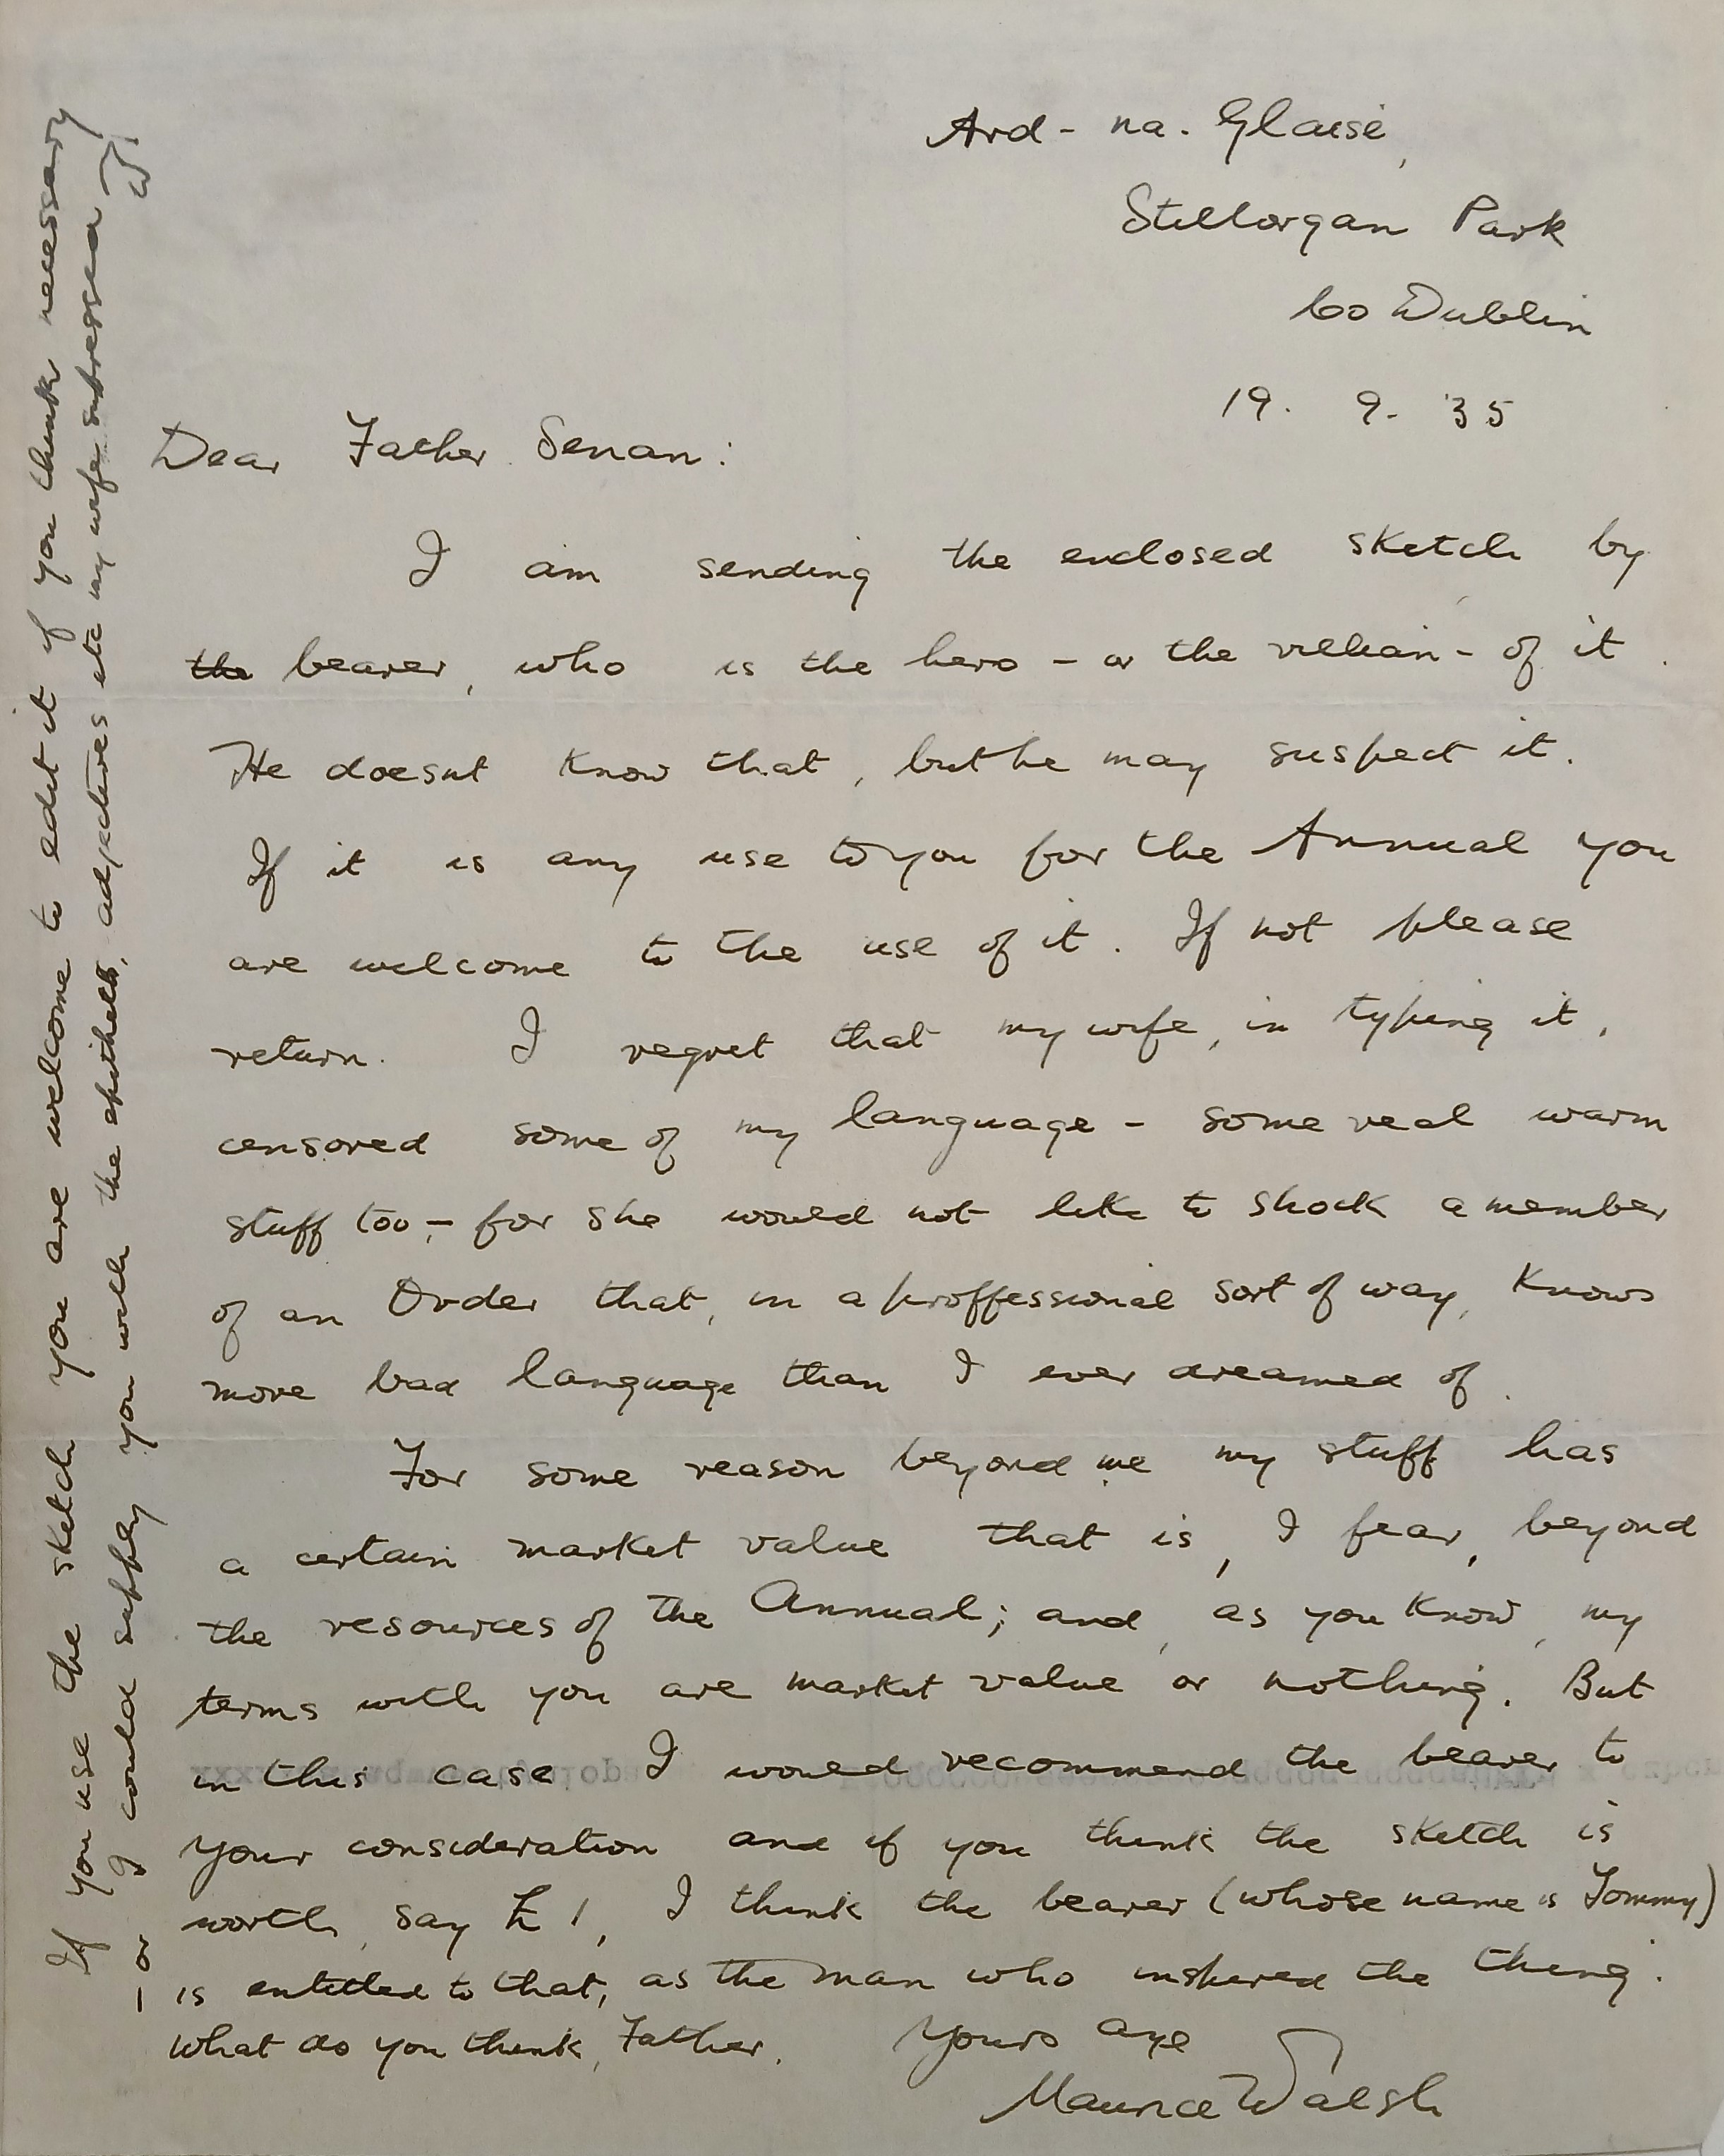 Ard-na-Glaise,
Stillorgan Park
Co Dublin
19. 9. '35
Dear Father Senan:
I am sending the enclosed sketch by
the bearer, who is the hero - or the villian - of it.
He doesnt know that, but he may suspect it.
If it is any use to you for the Annual you
are welcome to the use of it. If not please
return. I regret that my wife, in typing it,
censored some of my language - some real warm
stuff too, - for she would not like to shock a member
of an Order that, in a proffessional sort of way, knows
more bad language than I ever dreamed of.
For some reason beyond me my stuff has
a certain market value that is, I fear, beyond
the resources of the Annual; and, as you know, my
terms with you are market value or nothing. But
in this case I would recommend the bearer to
your consideration and if you think the sketch is
worth, say £1, I think the bearer (whose name is Tommy)
is entitled to that, as the man who inspired the thing.
What do you think, Father. Yours aye
Maurice Walsh
If you use the sketch you are welcome to edit it if you think necessary
- or I could supply you with the epithets, adjectives etc my wife supressed
W